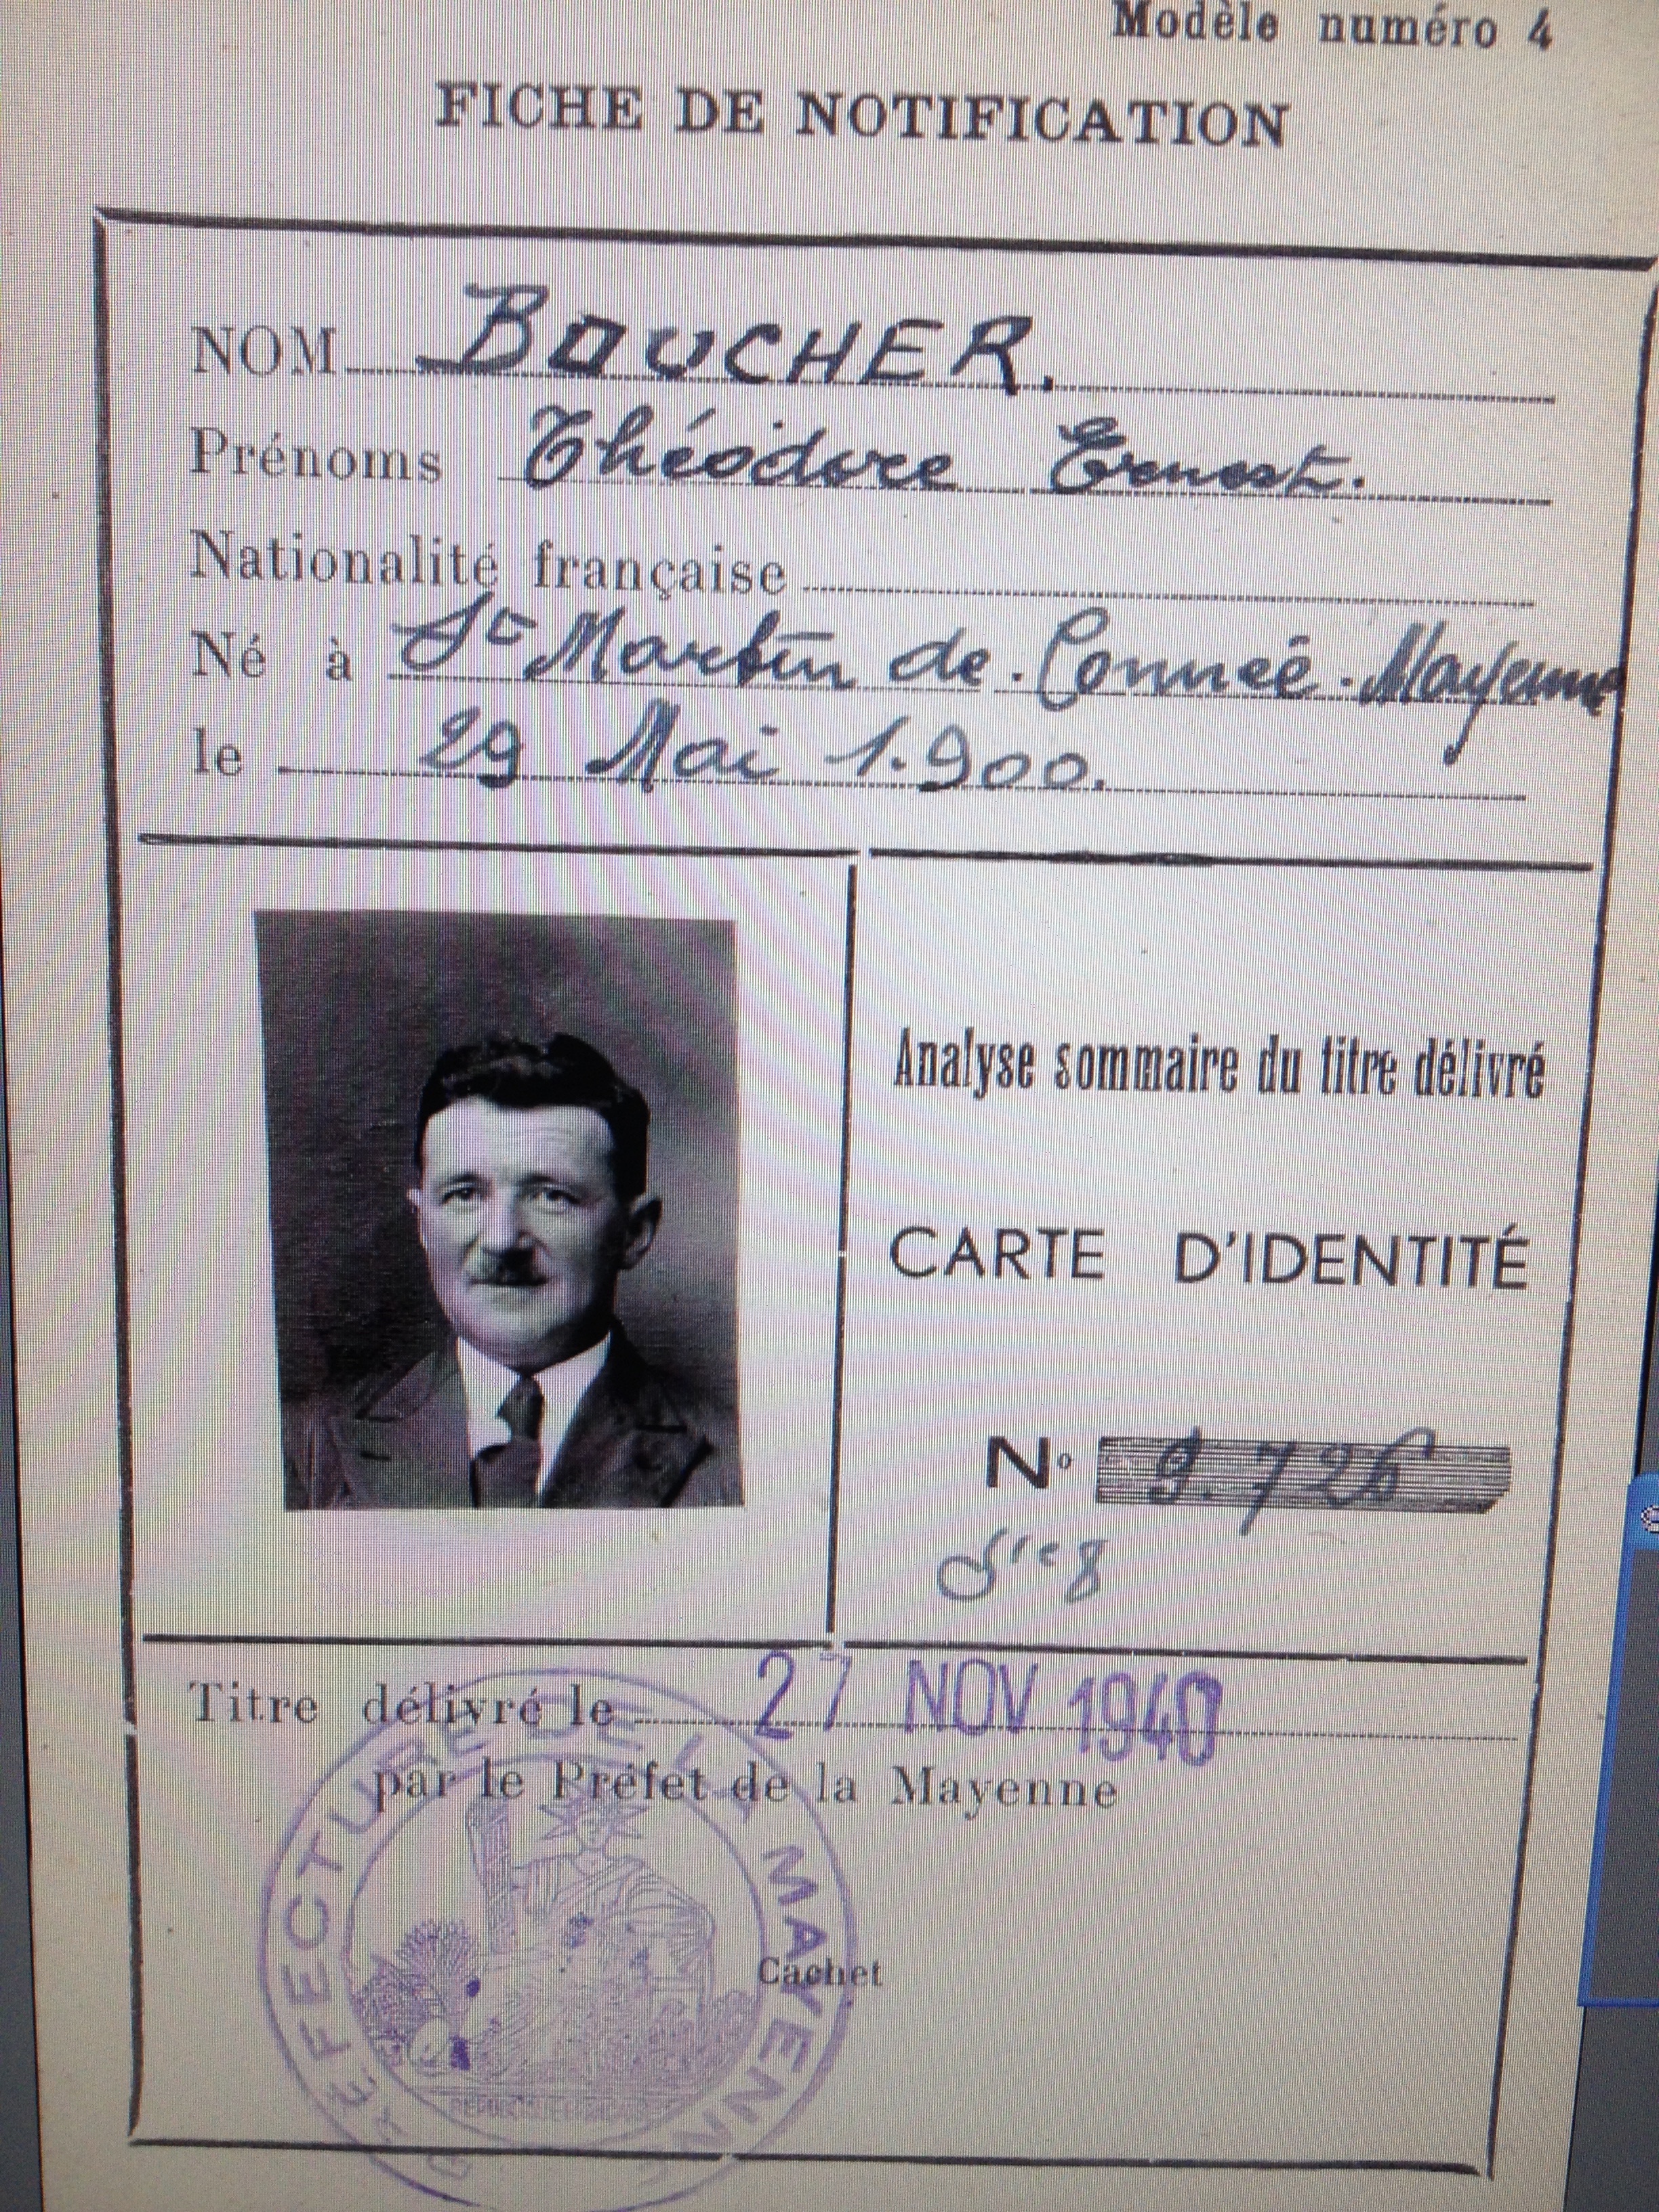 Modèle numéro 4
FICHE DE NOTIFICATION
NOM BOUCHER.
Prénoms Théodore Ernest.
Nationalité française
Né à St Martin de. Connée. Mayenne
le 29 Mai 1.900.
Analyse sommaire du titre délivré
CARTE D'IDENTITÉ
N° 9.726
Titre délivré le 27 NOV 1940
par le Préfet de la Mayenne
Cachet
PRÉFECTURE DE LA MAYENNE